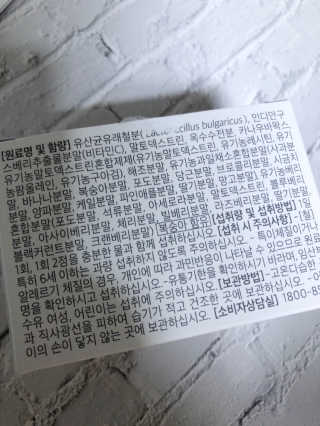 [원료명 및 함량] 유산균유래철분(Lactobacillus bulgaricus), 인디안구
스베리추출물분말(비타민C), 말토덱스트린, 옥수수전분, 카나우바왁스,
유기농말토덱스트린혼합제제(유기농말토덱스트린, 유기농레시틴, 유기
농팜올레인, 유기농구아검), 해조분말, 유기농과일채소혼합분말(사과분
말, 바나나분말, 복숭아분말, 포도분말, 당근분말, 브로콜리분말, 시금치
분말, 양파분말, 케일분말, 파인애플분말, 딸기분말, 망고분말), 유기농베리
혼합분말(포도분말, 석류분말, 아세로라분말, 말토덱스트린, 블루베리
분말, 아사이베리분말, 체리분말, 빌베리분말, 라즈베리분말, 딸기분말,
블랙커런트분말, 크랜베리분말) 복숭아 함유 [섭취량 및 섭취방법] 1일
1회, 1회 2정을 충분한 물과 함께 섭취하십시오. [섭취 시 주의사항] -[철]
특히 6세 이하는 과량 섭취하지 않도록 주의하십시오. - 특이체질이거나
알레르기 체질의 경우, 개인에 따라 과민반응이 나타날 수 있으므로 원료
명을 확인하시고 섭취하십시오. -유통기한을 확인하시기 바라며, 임산
수유 여성, 어린이는 섭취에 주의하십시오. [보관방법] -고온다습한
과 직사광선을 피하여 습기가 적고 건조한 곳에 보관하십시오. -어
이의 손이 닿지 않는 곳에 보관하십시오. [소비자상담실] 1800-85